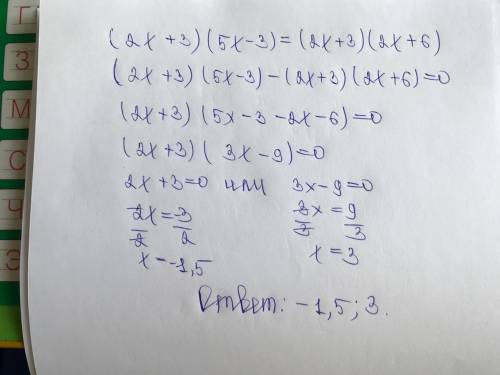 Г
З
М
С
Ч
Э
(2x+3)(5x-3)=(2x+3)(2x+6)
(2x+3)(5x-3)-(2x+3)(2x+6)=0
(2x+3)(5x-3-2x-6)=0
(2x+3)(3x-9)=0
2x+3=0 или 3x-9=0
2x/2=-3/2 3x/3=9/3
x=-1,5 x=3
Ответ: -1,5; 3.